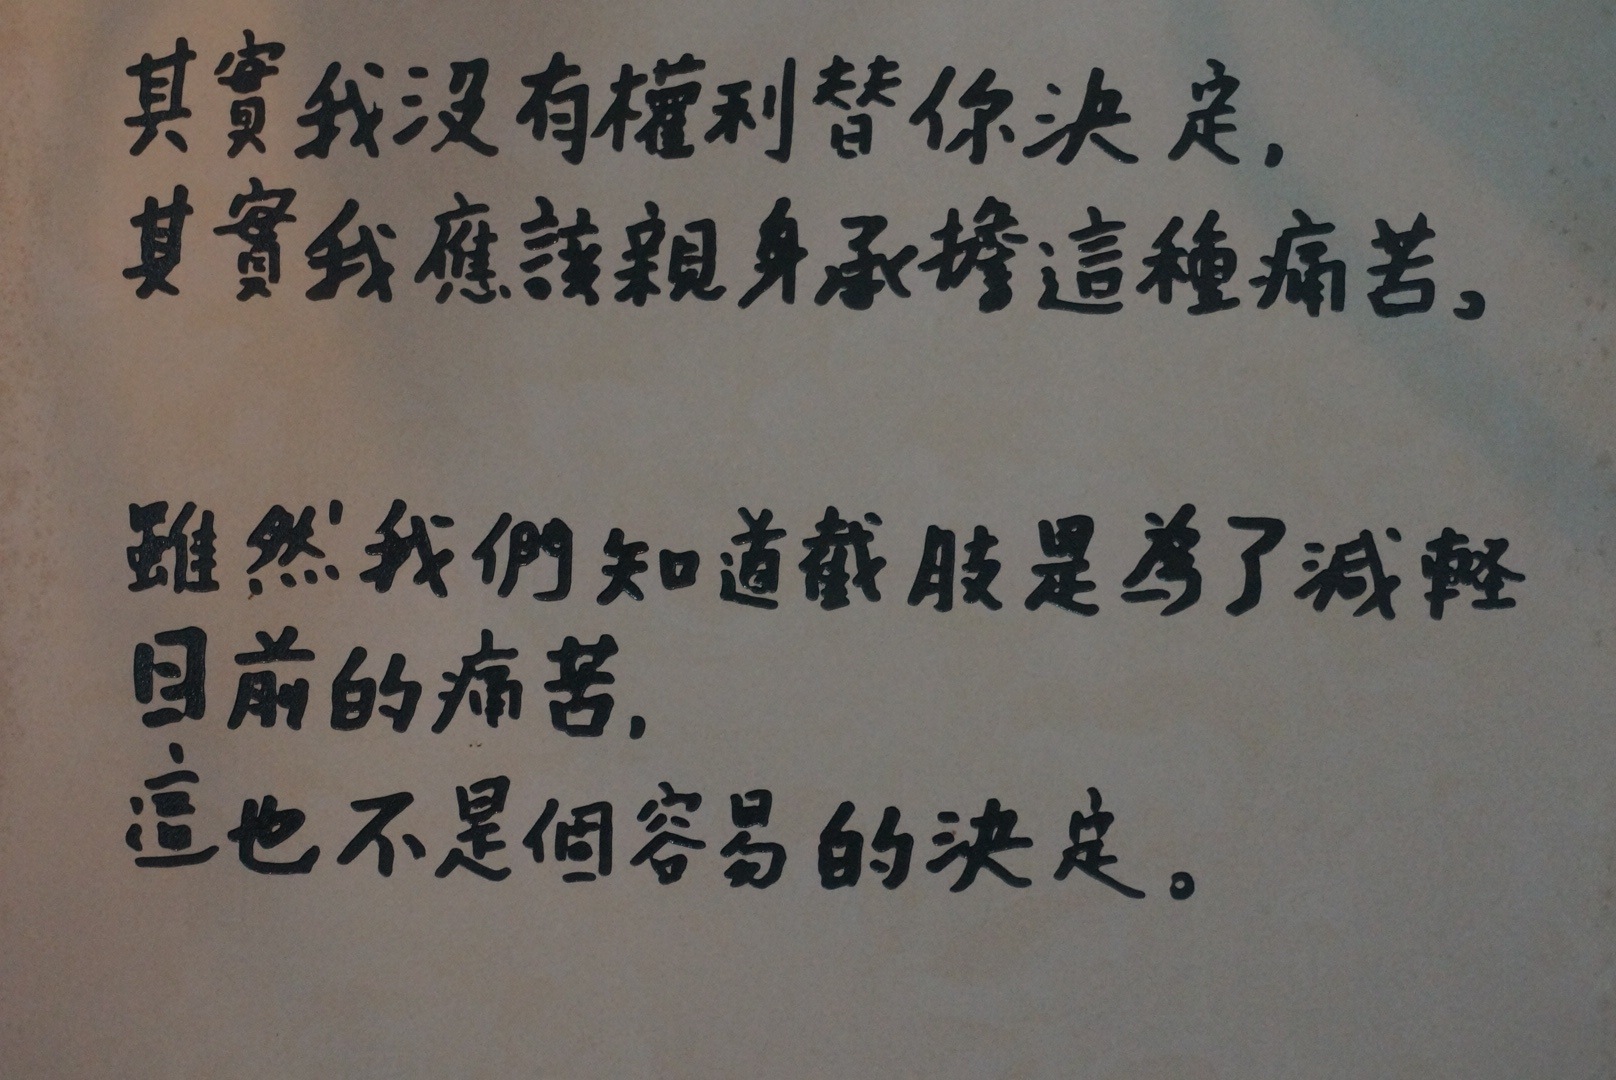 其實我沒有權利替你決定，
其實我應該親身承擔這種痛苦。
雖然我們知道截肢是為了減輕
目前的痛苦，
這也不是個容易的決定。